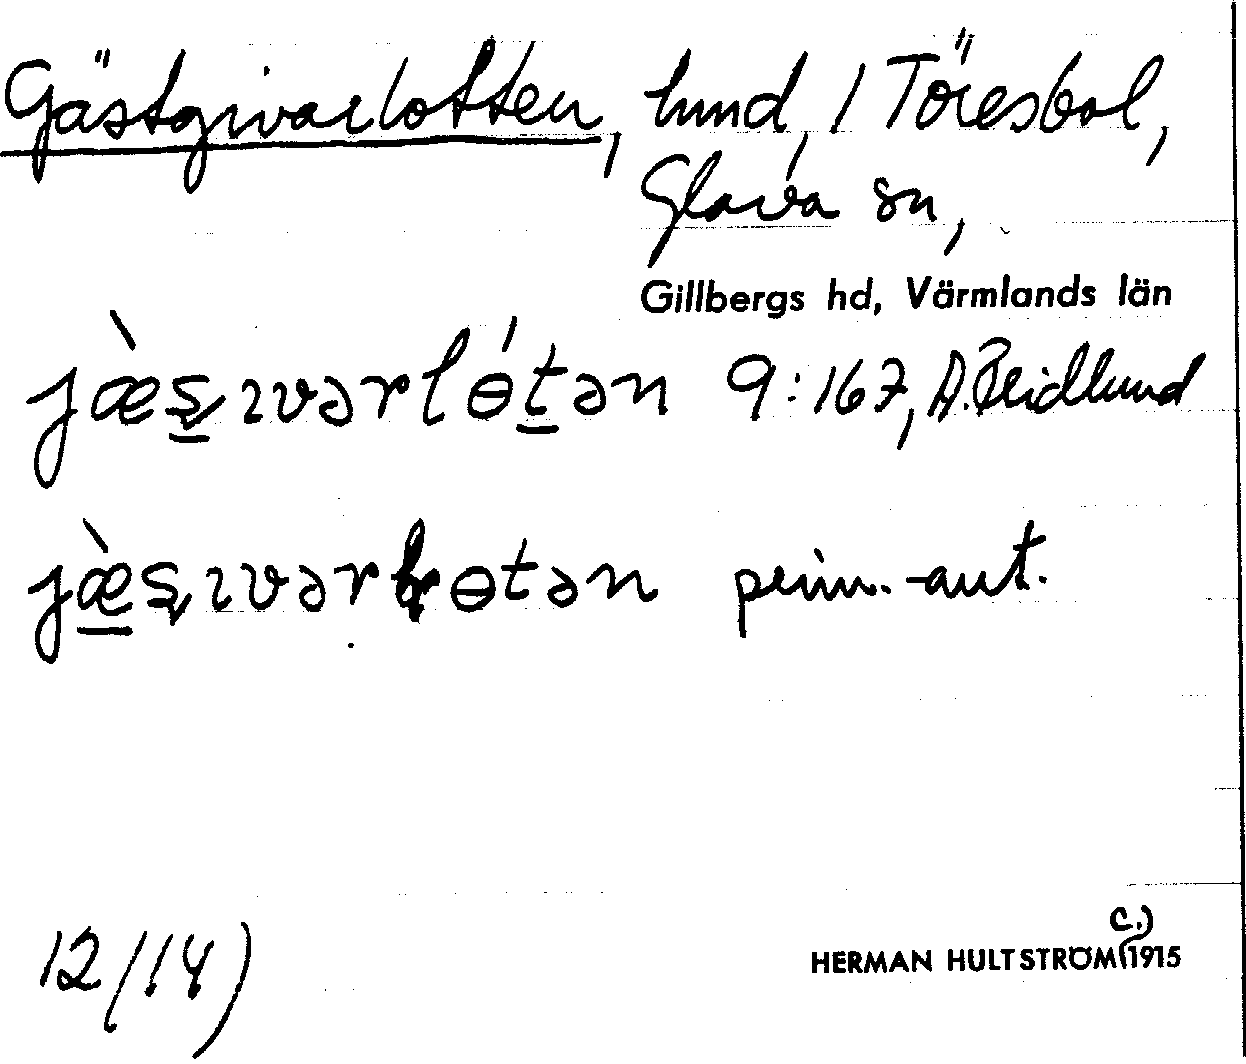 Gästgivarlotten, lund, / Töresbol,
Glava sn,
Gillbergs hd, Värmlands län
jæ̀s̨̱ɪvərlɵ́ṯən 9:167, A. Bleidlund
jæ̱̀s̨ɪvərlɵtən prim.-ant.
12/14)
HERMAN HULTSTRÖM (c.) 1915